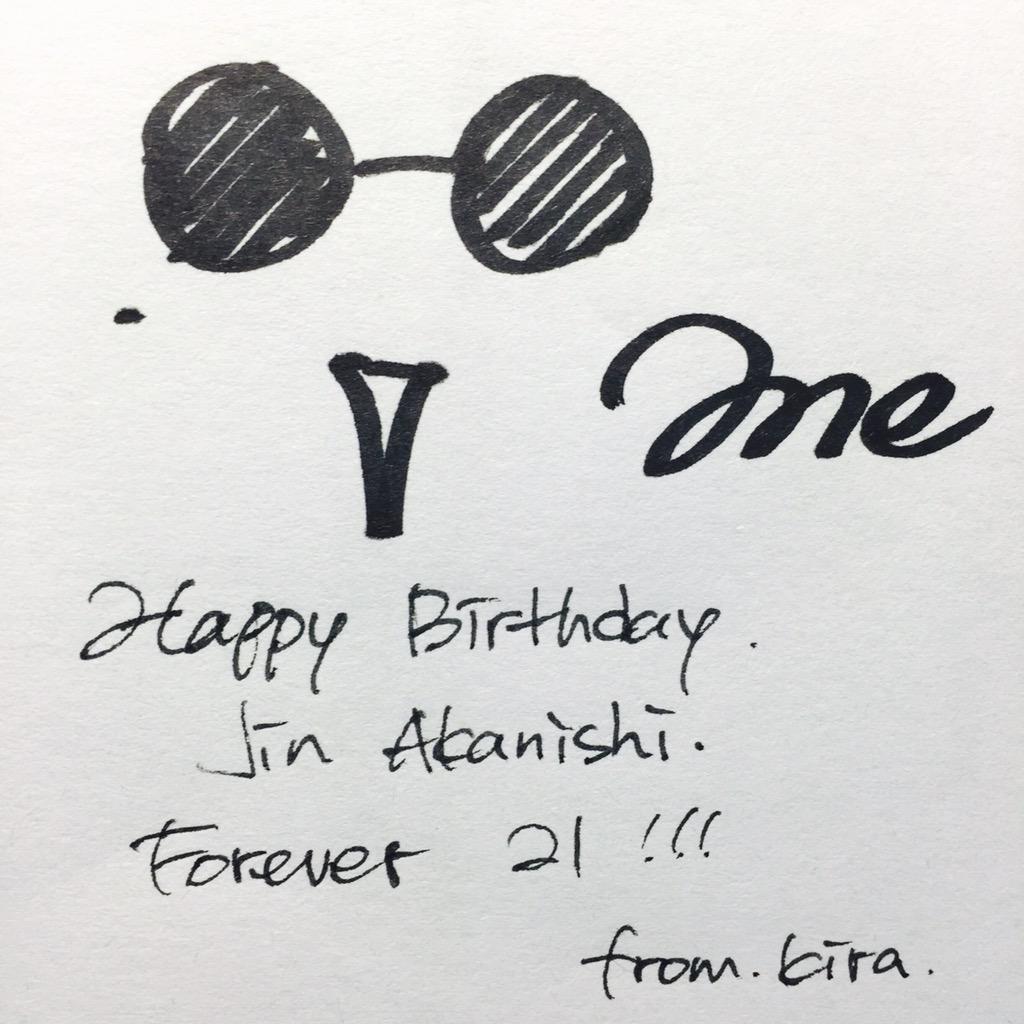 me
Happy Birthday.
Jin Akanishi.
Forever 21 !!!
from. kira.